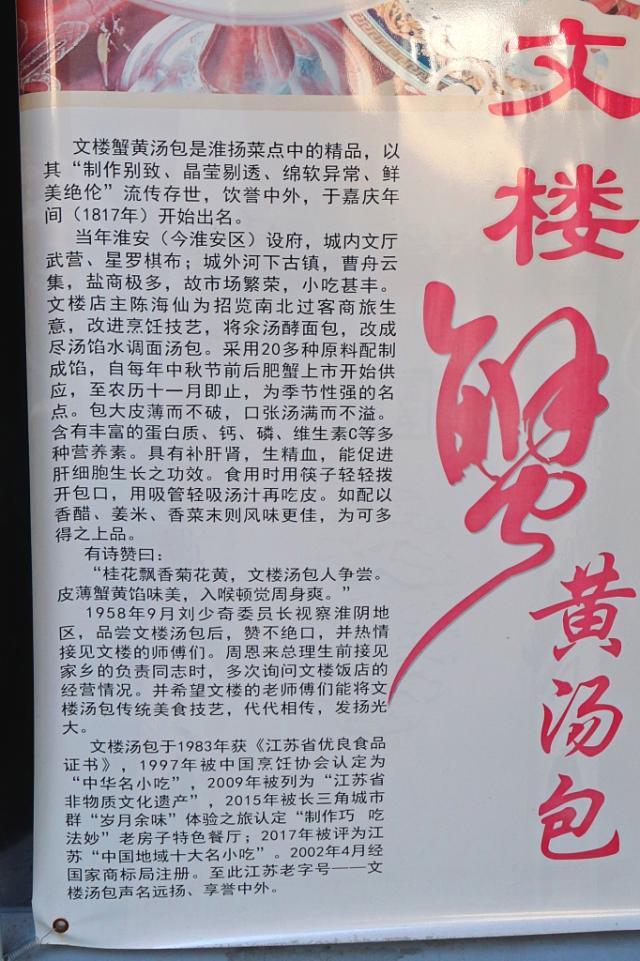 文楼蟹黄汤包
文楼蟹黄汤包是淮扬菜点中的精品，以
其“制作别致、晶莹剔透、绵软异常、鲜
美绝伦”流传存世，饮誉中外，于嘉庆年
间（1817年）开始出名。
当年淮安（今淮安区）设府，城内文厅
武营、星罗棋布；城外河下古镇，曹舟云
集，盐商极多，故市场繁荣，小吃甚丰。
文楼店主陈海仙为招览南北过客商旅生
意，改进烹饪技艺，将汆汤酵面包，改成
尽汤馅水调面汤包。采用20多种原料配制
成馅，自每年中秋节前后肥蟹上市开始供
应，至农历十一月即止，为季节性强的名
点。包大皮薄而不破，口张汤满而不溢。
含有丰富的蛋白质、钙、磷、维生素C等多
种营养素。具有补肝肾，生精血，能促进
肝细胞生长之功效。食用时用筷子轻轻拨
开包口，用吸管轻吸汤汁再吃皮。如配以
香醋、姜米、香菜末则风味更佳，为可多
得之上品。
有诗赞曰：
“桂花飘香菊花黄，文楼汤包人争尝。
皮薄蟹黄馅味美，入喉顿觉周身爽。”
1958年9月刘少奇委员长视察淮阴地
区，品尝文楼汤包后，赞不绝口，并热情
接见文楼的师傅们。周恩来总理生前接见
家乡的负责同志时，多次询问文楼饭店的
经营情况。并希望文楼的老师傅们能将文
楼汤包传统美食技艺，代代相传，发扬光
大。
文楼汤包于1983年获《江苏省优良食品
证书》，1997年被中国烹饪协会认定为
“中华名小吃”，2009年被列为“江苏省
非物质文化遗产”，2015年被长三角城市
群“岁月余味”体验之旅认定“制作巧 吃
法妙”老房子特色餐厅；2017年被评为江
苏“中国地域十大名小吃”。2002年4月经
国家商标局注册。至此江苏老字号——文
楼汤包声名远扬、享誉中外。